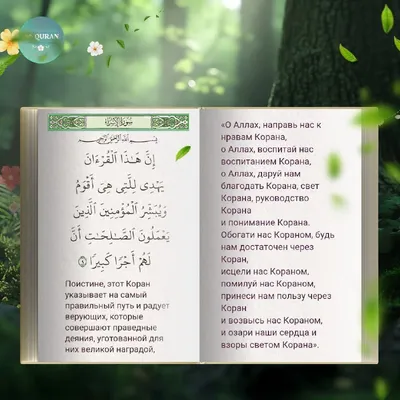 QURAN
سورة الإسراء
بِسْمِ اللَّهِ الرَّحْمَٰنِ الرَّحِيمِ
إِنَّ هَٰذَا ٱلْقُرْءَانَ
يَهْدِى لِلَّتِى هِىَ أَقْوَمُ
وَيُبَشِّرُ ٱلْمُؤْمِنِينَ ٱلَّذِينَ
يَعْمَلُونَ ٱلصَّٰلِحَٰتِ أَنَّ
لَهُمْ أَجْرًا كَبِيرًا ٩
Поистине, этот Коран
указывает на самый
правильный путь и радует
верующих, которые
совершают праведные
деяния, уготованной для
них великой наградой,
«О Аллах, направь нас к
нравам Корана,
о Аллах, воспитай нас
воспитанием Корана,
о Аллах, даруй нам
благодать Корана, свет
Корана, руководство
Корана
и понимание Корана.
Обогати нас Кораном, будь
нам достаточен через
Коран,
исцели нас Кораном,
помилуй нас Кораном,
принеси нам пользу через
Коран
и возвысь нас Кораном,
и озари наши сердца и
взоры светом Корана».